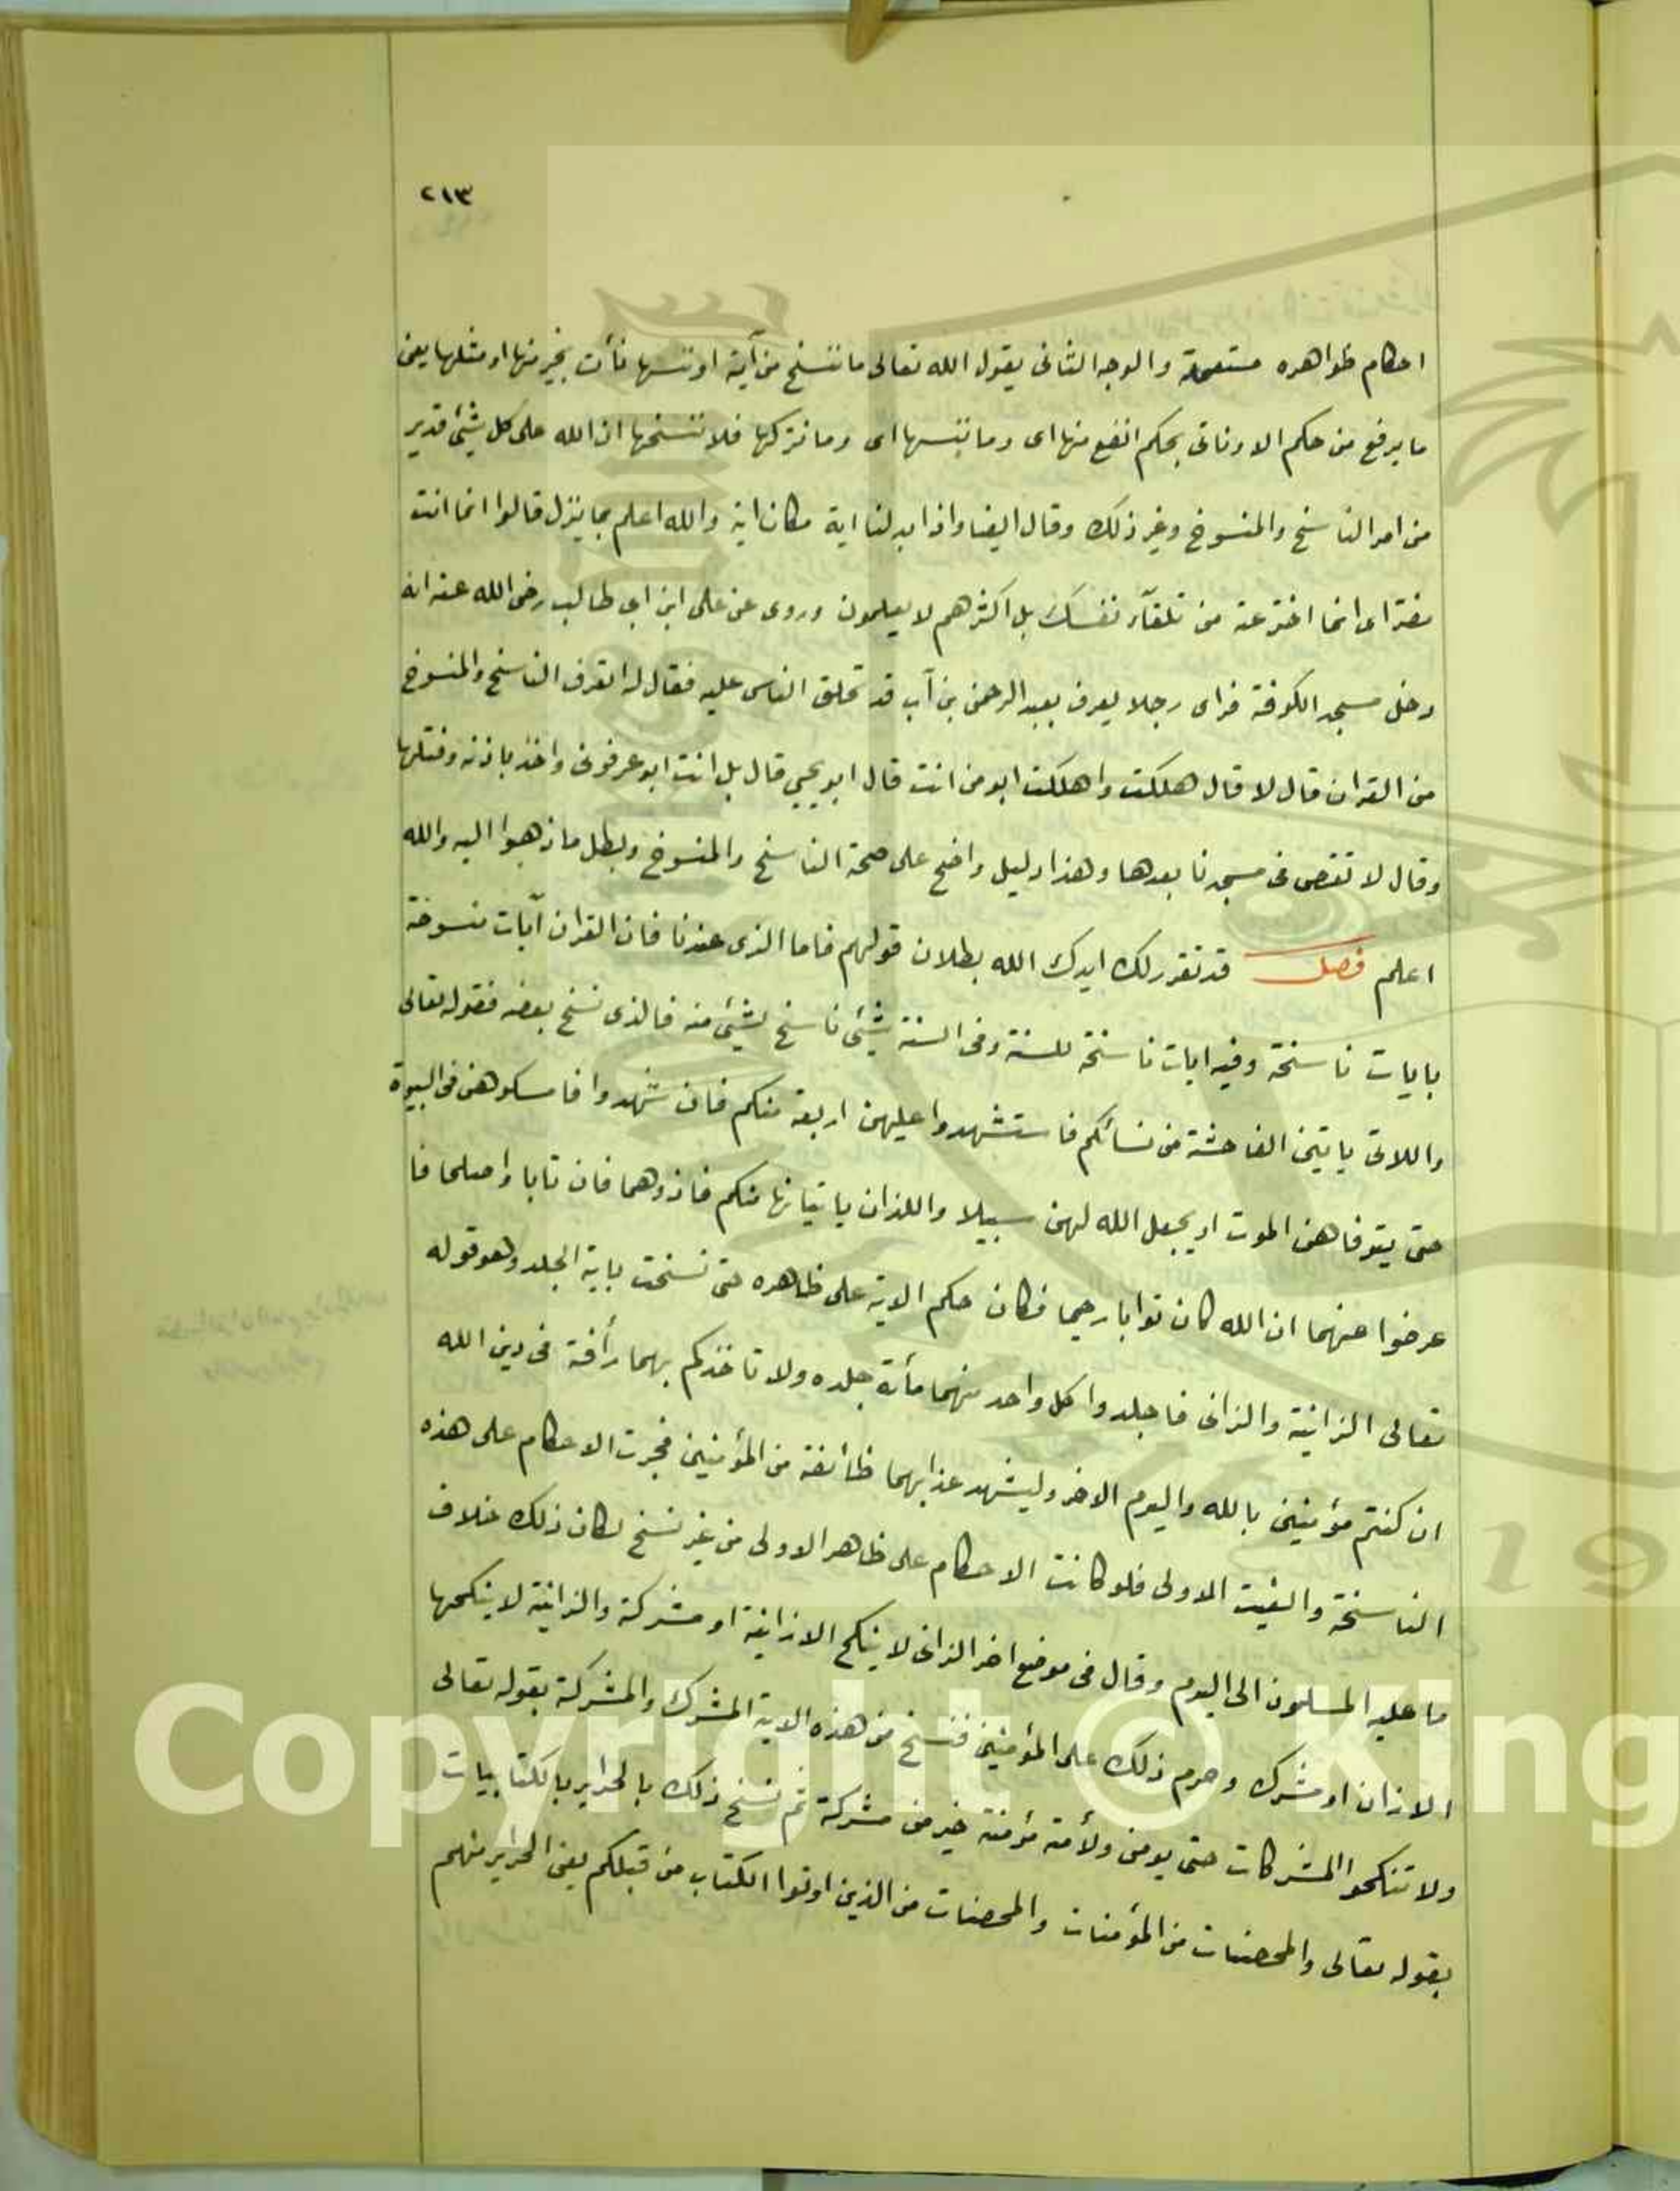 ٢١٣
احكام ظواهره مستعملة والوجه الثانى يقول الله تعالى ما ننسخ من آية او ننسها نأت بخير منها او مثلها يعنى
ما يرفع من حكم الا وناتى بحكم انفع منها اى وما ننسها اى وما نتركها فلا ننسخها ان الله على كل شئ قدير
من امر الناسخ والمنسوخ وغير ذلك وقال ايضا واذا بدلنا اية مكان اية والله اعلم بما ينزل قالوا انما انت
مفتر اى انما اخترعته من تلقآء نفسك بل اكثرهم لا يعلمون وروى عن على ابن ابى طالب رضى الله عنه انه
دخل مسجد الكوفة فراى رجلا يعرف بعبد الرحمن بن آب قد تحلق الناس عليه فقال له اتعرف الناسخ والمنسوخ
من القران قال لا قال هلكت واهلكت ابو من انت قال ابو يحيى قال بل انت ابو عرفونى واخذ باذنه وفتلها
وقال لا تقص فى مسجدنا بعدها وهذا دليل واضح على صحة الناسخ والمنسوخ وبطل ما ذهبوا اليه والله
اعلم فصل قد تقرر لك ايدك الله بطلان قولهم فاما الذى عندنا فان القران آيات منسوخة
بايات ناسخة وفيه ايات ناسخة للسنة وفى السنة شئ ناسخ لشئ منه فالذى نسخ بعضه فقوله تعالى
واللاتى ياتين الفاحشة من نسائكم فاستشهدوا عليهن اربعة منكم فان شهدوا فامسكوهن فى البيوة
حتى يتوفاهن الموت او يجعل الله لهن سبيلا واللذان ياتيانها منكم فاذوهما فان تابا واصلحا فا
عرضوا عنهما ان الله كان توابا رحيما فكان حكم الاية على ظاهره حتى نسخت باية الجلد وهو قوله
تعالى الزانية والزانى فاجلدوا كل واحد منهما مأئة جلده ولا تاخذكم بهما رأفة فى دين الله
ان كنتم مؤمنين بالله واليوم الاخر وليشهد عذابهما طائفة من المؤمنين فجرت الاحكام على هذه
الناسخة والغيت الاولى فلو كانت الاحكام على ظاهر الاولى من غير نسخ لكان ذلك خلاف
ما عليه المسلمون الى اليوم وقال فى موضع اخر الزانى لا ينكح الا زانية او مشركة والزانية لا ينكحها
الا زان او مشرك وحرم ذلك على المؤمنين فنسخ من هذه الاية المشرك والمشركة بقوله تعالى
ولا تنكحوا المشركات حتى يومن ولأمة مؤمنة خير من مشركة ثم نسخ ذلك بالحراير بالكتابيات
بقوله تعالى والمحصنات من المؤمنات والمحصنات من الذين اوتوا الكتاب من قبلكم يعنى الحراير منهم
Copyright © King